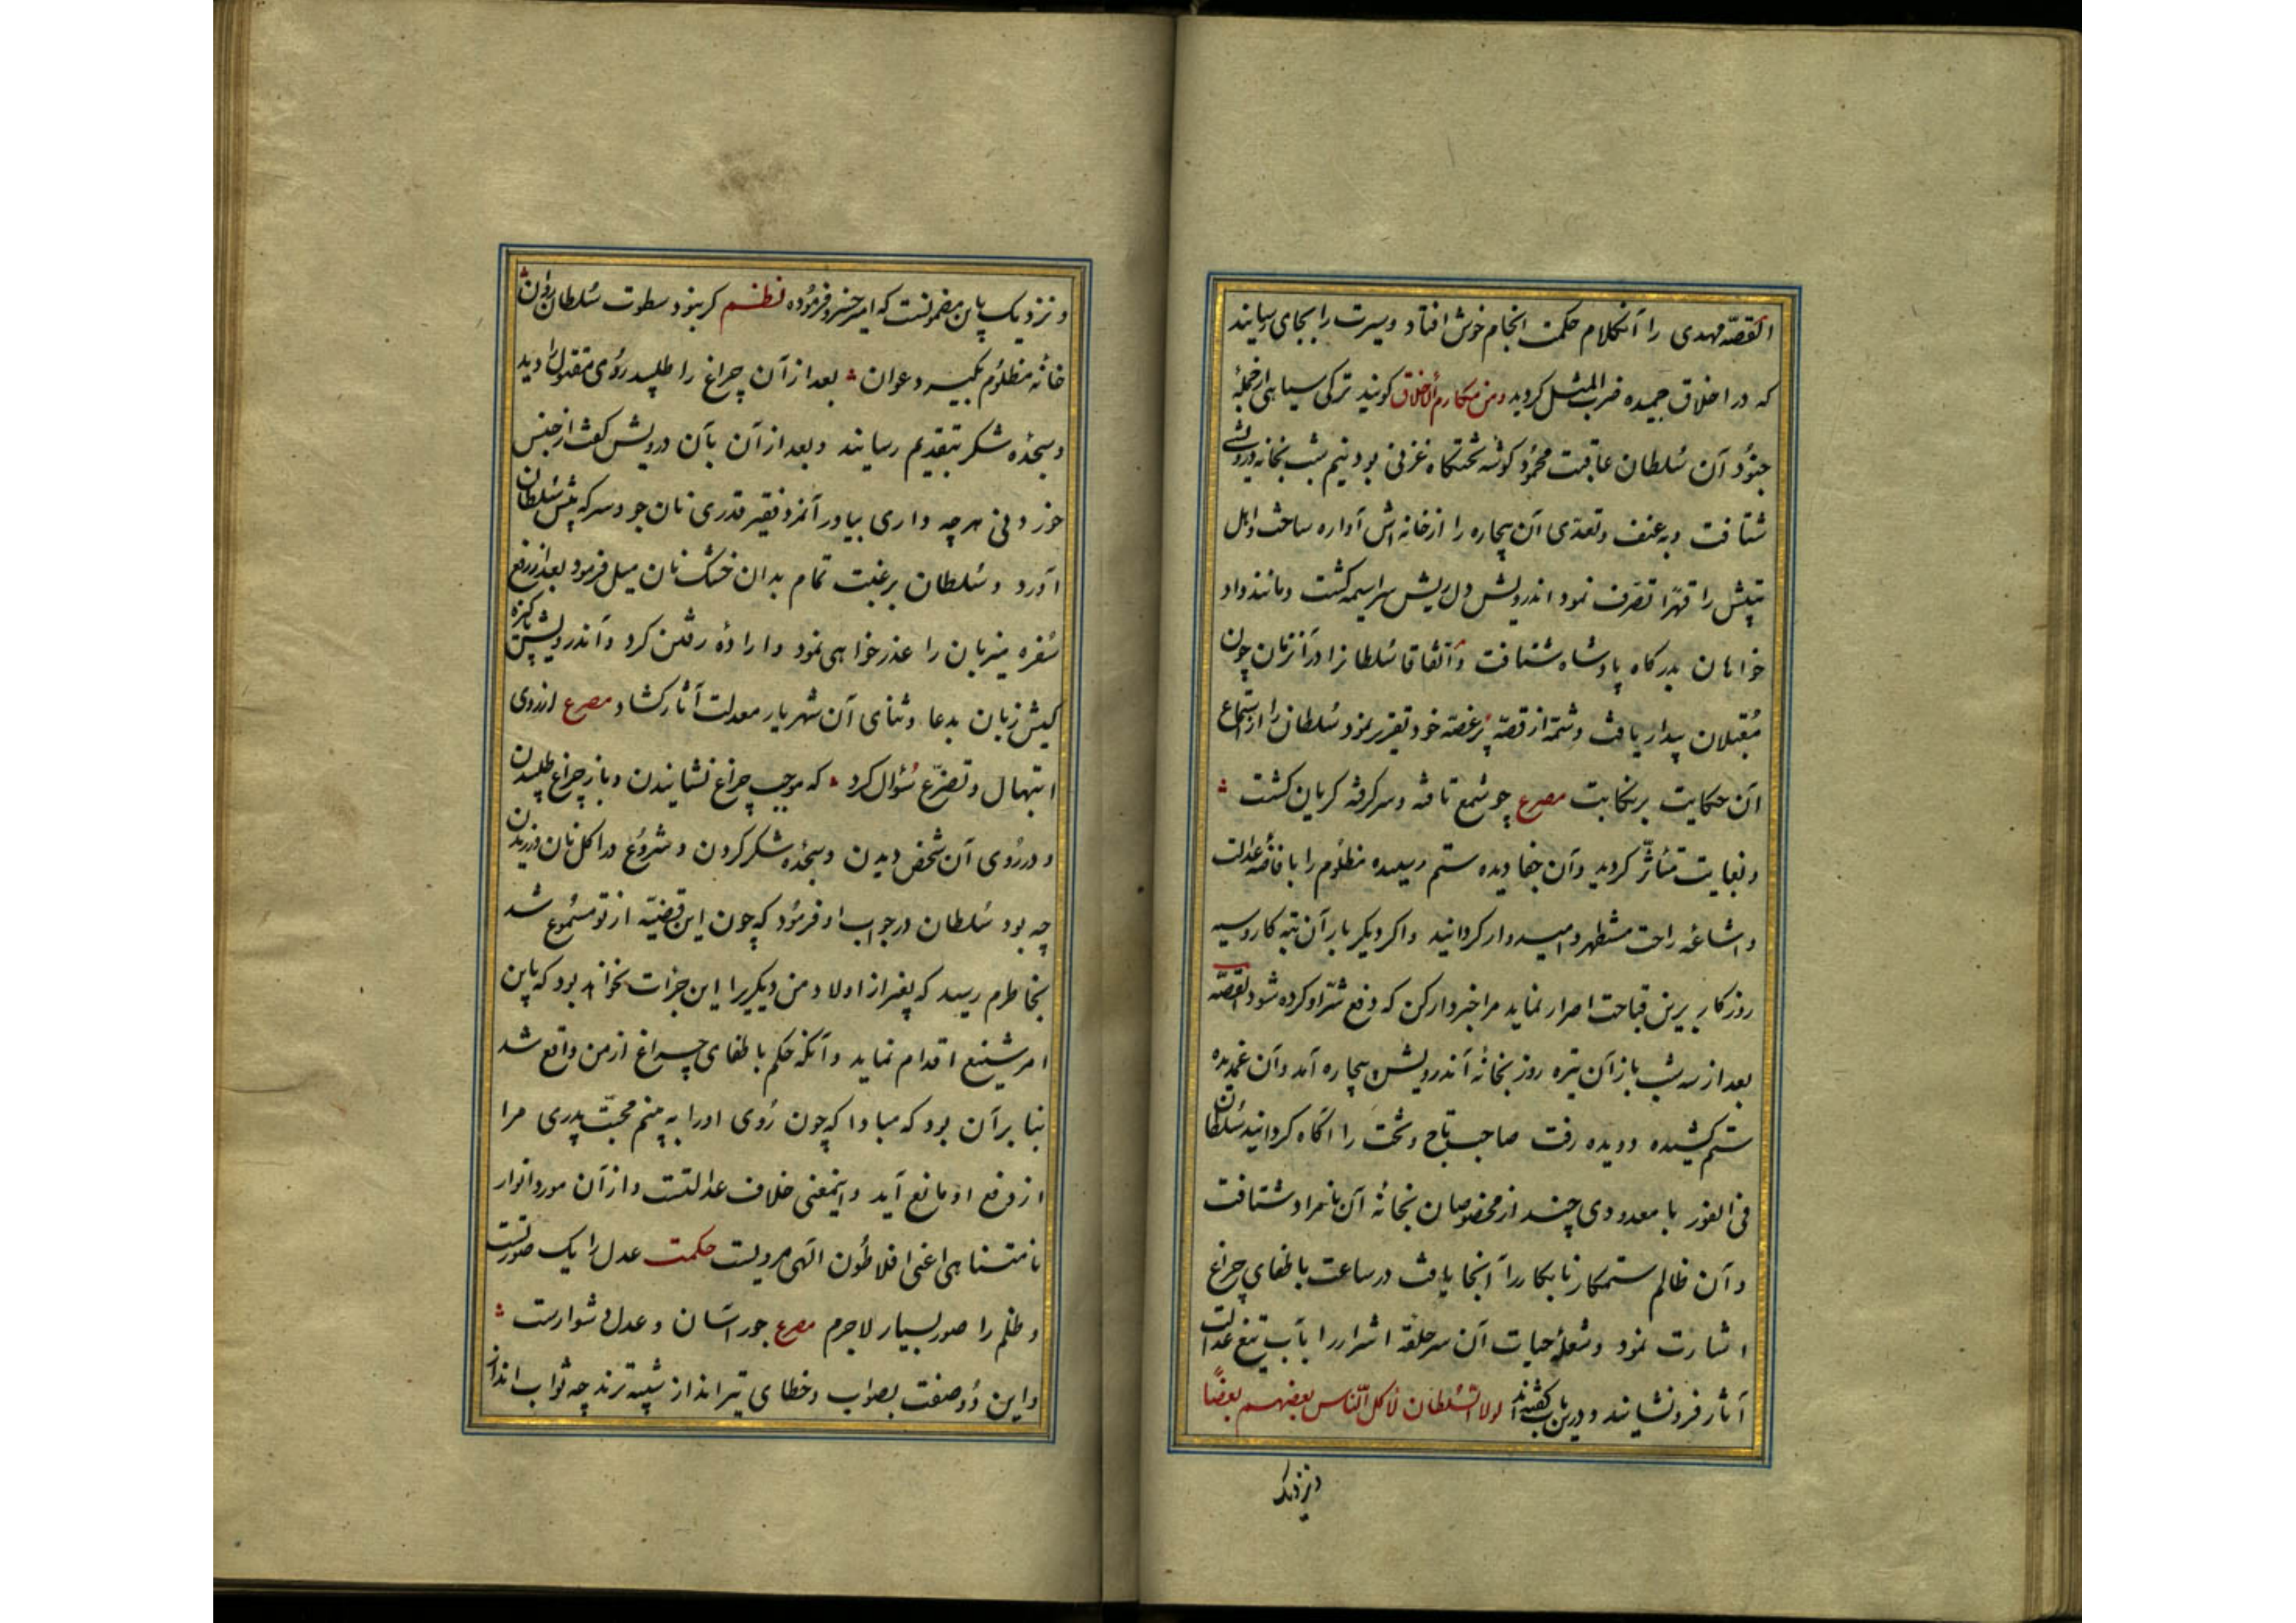 القصّه مهدی را آنکلام حکمت انجام خوش افتاد و سیرت را بجای رسانید
که در اخلاق حمیده ضرب المثل کردید و من مکارم الاخلاق کویند ترکی سپاهی از جملهٔ
جنود آن سلطان عاقبت محمود کوشه تختکاه غزنی بود نیم شب بخانه درویشی
شتافت و به عنف و تعدّی آن بیچاره را از خانه اش آواره ساخت و اهل
بیتش را قهرًا تصرف نمود اندرویش دل ریش سراسیمه کشت و مانند داد
خواهان بدرکاه پادشاه شتافت و اتّفاقا سلطانرا در آنزمان چون
مقبلان بیدار یافت و شمّهٔ از قصّه پر غصّه خود تقریر نمود سلطان را از استماع
آن حکایت پرنکایت مصرع چو شمع تافته و سرکرفته کریان کشت
و بغایت متأثّر کردید و آن جفا دیده ستم رسیده مظلوم را بافاضه عدالت
و اشاعه راحت مستظهر و امیدوار کردانید و اکر دیکر بار آن تبه کار و سیه
روزکار برین قباحت اصرار نماید مرا خبردار کن که دفع شرّ او کرده شود القصّه
بعد از سه شب باز آن تیره روز بخانهٔ آندرویش بیچاره آمد و آن غمدیده
ستم کشیده دویده رفت صاحب تاج و تخت را آکاه کردانید سلطان
فی الفور با معدودی چند از مخصوصان بخانهٔ آن نامراد شتافت
و آن ظالم ستمکار نابکار را آنجا یافت در ساعت باطفای چراغ
اشارت نمود و شعلهٔ حیات آن سر حلقه اشرار را بآب تیغ عدالت
آثار فرو نشانید و درین باب کفته اند لولا السّلطان لاکل النّاس بعضهم بعضًا
و نزدیک
و نزدیک باین مضمونست که امیر خسرو فرموده نظم کر نبود سطوت سلطان روان
خانهٔ مظلوم بکیرد عوان بعد از آن چراغ را طلبید روی مقتول را دید
و سجدهٔ شکر بتقدیم رسانید و بعد از آن بآن درویش کفت از جنس
خوردنی هر چه داری بیاور آنمرد فقیر قدری نان جو و سرکه پیش سلطان
آورد و سلطان برغبت تمام بدان خشک نان میل فرمود بعد از رفع
سفره میزبان را عذر خواهی نمود و ارادهٔ رفتن کرد و آندرویش پاکیزه
کیش زبان بدعا و ثنای آن شهریار معدلت آثار کشاد مصرع از روی
ابتهال و تضرّع سؤال کرد که موجب چراغ نشانیدن و باز چراغ طلبیدن
و در روی آن شخص دیدن و سجدهٔ شکر کردن و شروع در اکل نان ورزیدن
چه بود سلطان در جواب او فرمود که چون این قضیّه از تو مسموع شد
بخاطرم رسید که بغیر از اولاد من دیکریرا این جرات نخواهد بود که باین
امر شنیع اقدام نماید و آنکه حکم باطفای چراغ از من واقع شد
بنا بر آن بود که مبادا که چون روی او را به بینم محبّت پدری مرا
از دفع او مانع آید و اینمعنی خلاف عدالتست و از آن مورد انوار
نامتناهی اعنی افلاطون الهی مرویست حکمت عدل را یک صورتست
و ظلم را صور بسیار لاجرم مصرع جور آسان و عدل دشوارست
و این دو صفت بصواب و خطای تیر انداز شبیه ترند چه ثواب انداز